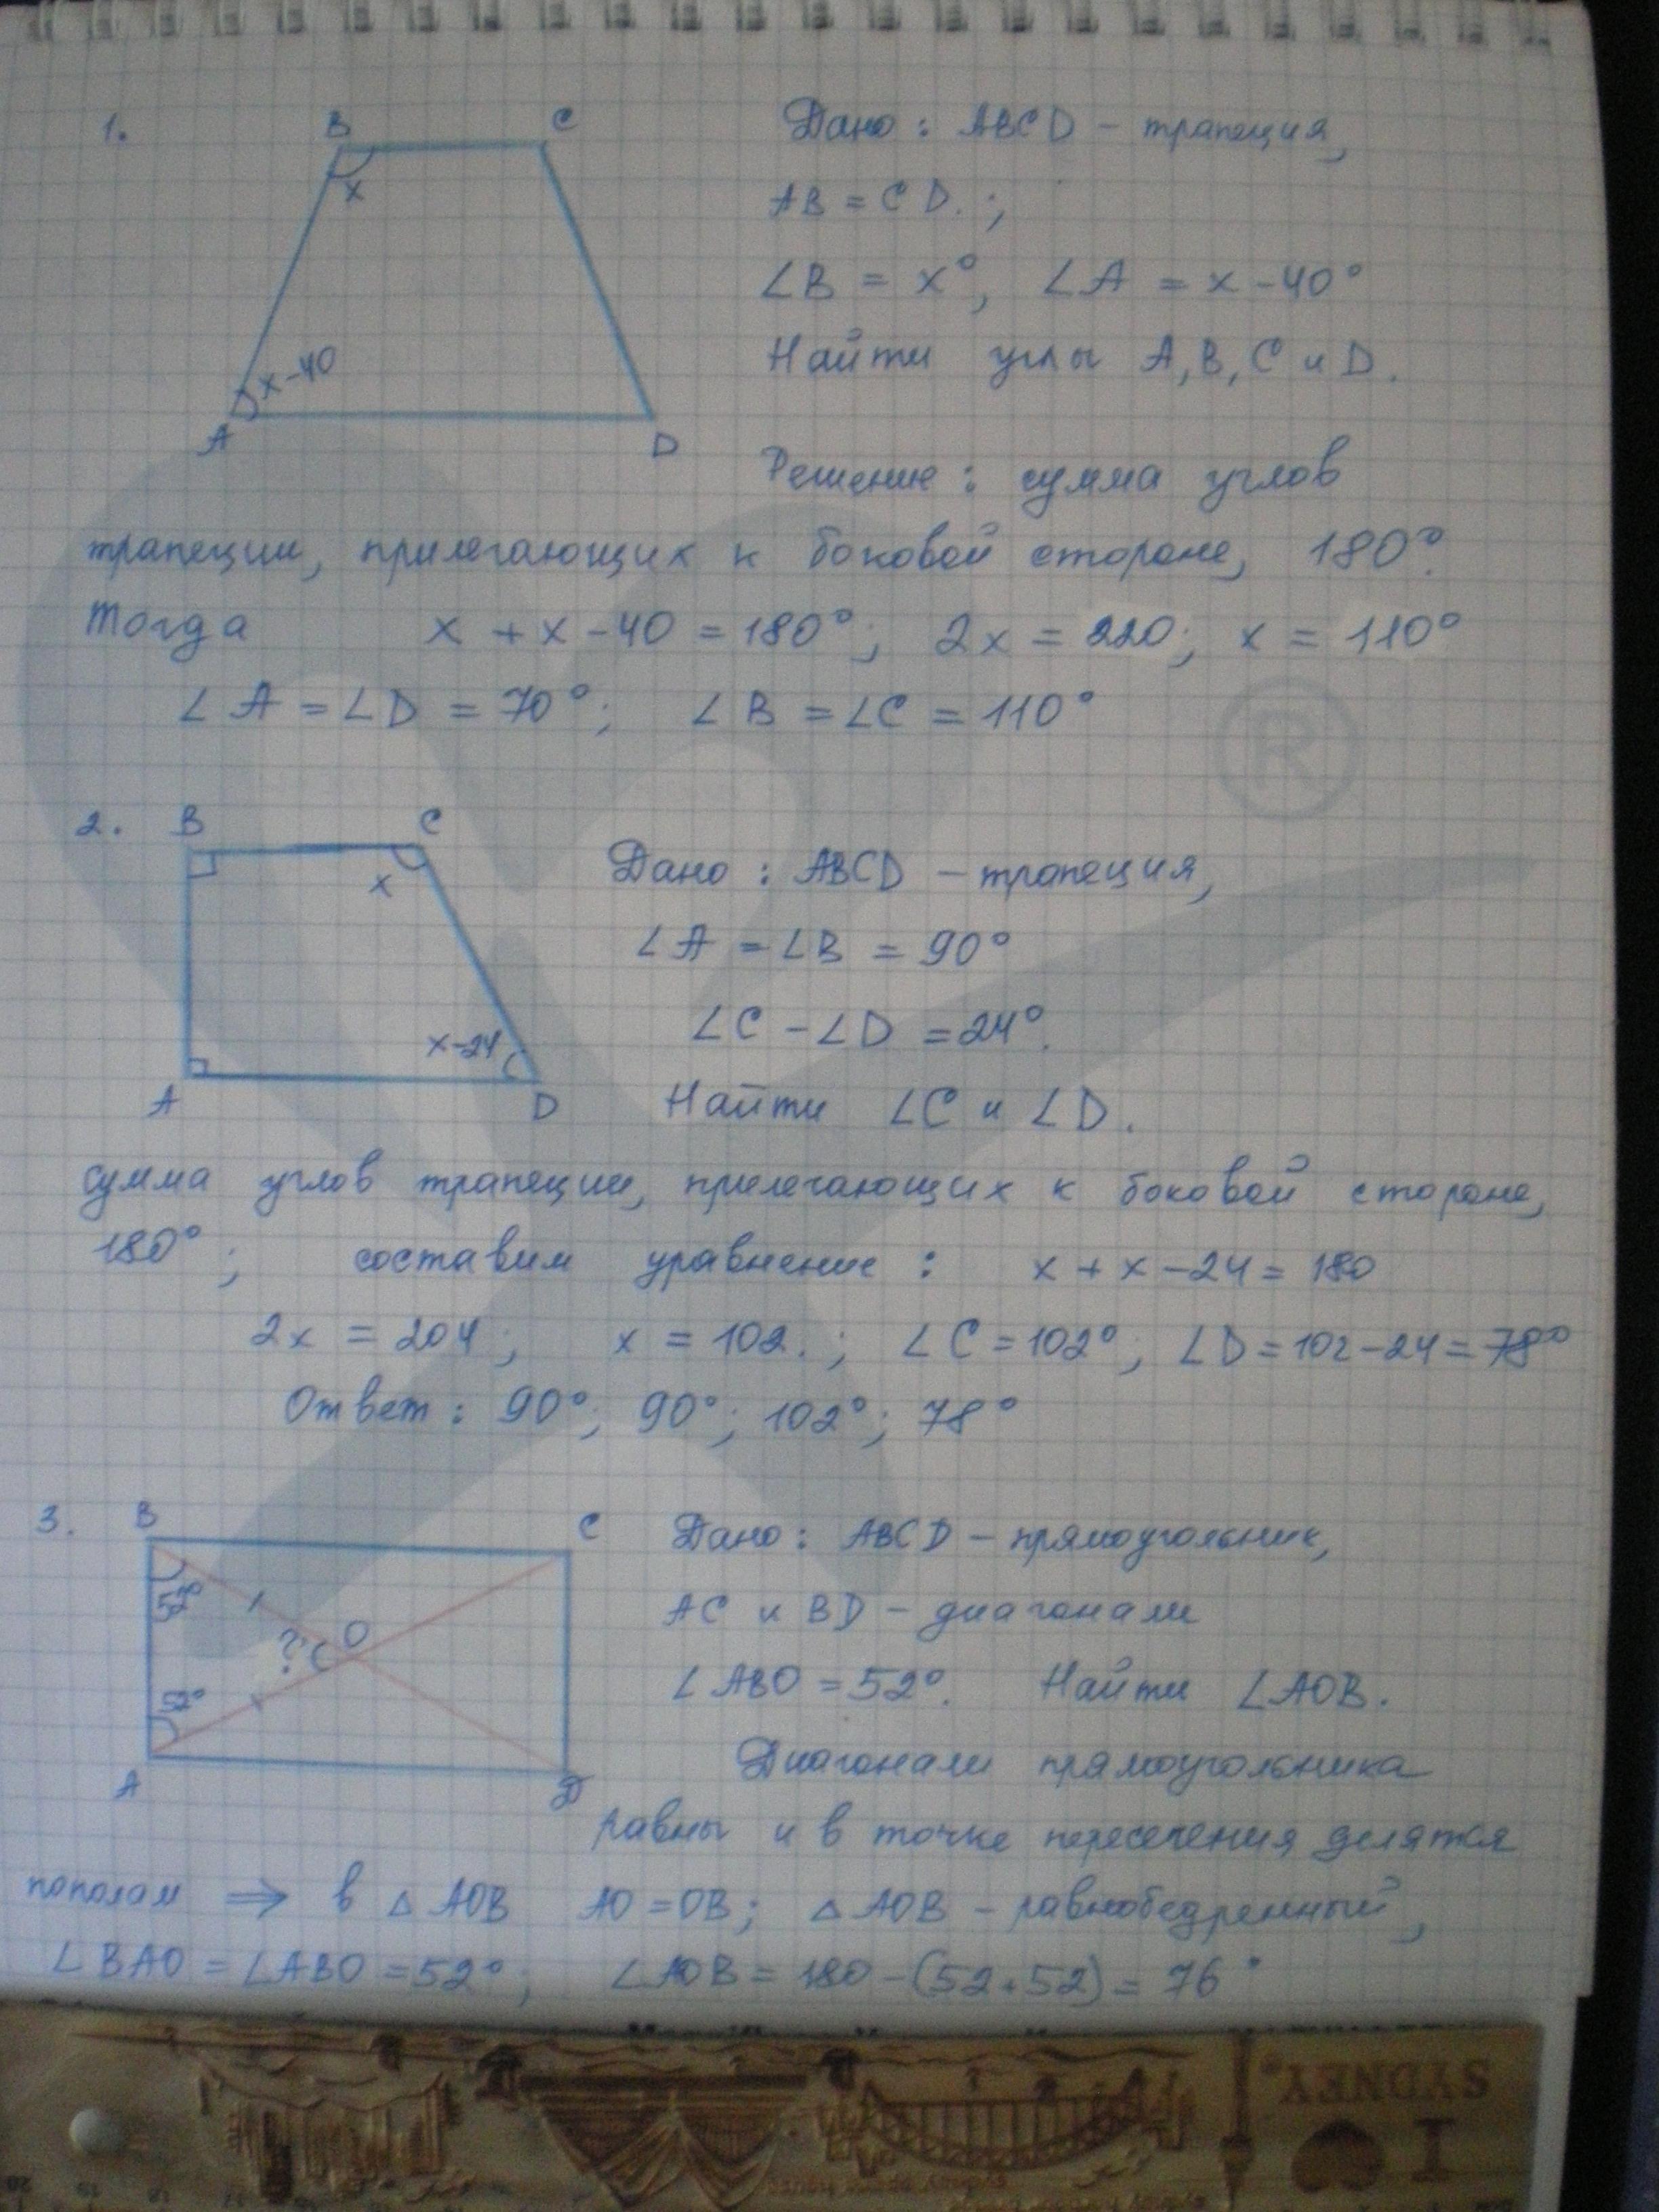 1.
B
C
x
x-40
A
D
Дано: ABCD - трапеция,
AB = CD.;
∠B = x°, ∠A = x-40°
Найти углы A, B, C и D.
Решение: сумма углов
трапеции, прилегающих к боковой стороне, 180°.
Тогда x + x - 40 = 180°; 2x = 220; x = 110°
∠A = ∠D = 70°; ∠B = ∠C = 110°
®
2.
B
C
x
x-24
A
D
Дано: ABCD - трапеция,
∠A = ∠B = 90°
∠C - ∠D = 24°.
Найти ∠C и ∠D.
сумма углов трапеции, прилегающих к боковой стороне,
180°; составим уравнение: x + x - 24 = 180
2x = 204; x = 102.; ∠C = 102°; ∠D = 102-24 = 78°
Ответ: 90°; 90°; 102°; 78°
3.
B
C
52°
O
?
52°
A
D
Дано: ABCD - прямоугольник,
AC и BD - диагонали
∠ABO = 52°. Найти ∠AOB.
Диагонали прямоугольника
равны и в точке пересечения делятся
пополам ⇒ в △AOB AO = OB; △AOB - равнобедренный,
∠BAO = ∠ABO = 52°; ∠AOB = 180 - (52+52) = 76°
I
SYDNEY